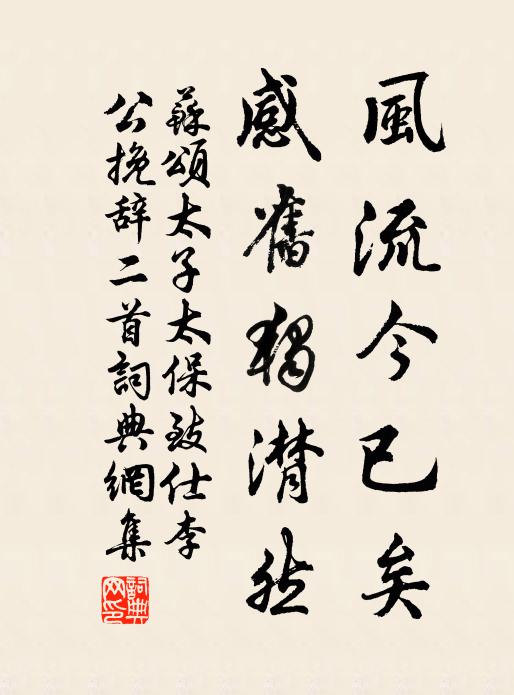 風流今已矣
感舊獨潸然
蘇頌太子太保致仕李
公挽辞二首詞典網集
詞典网印